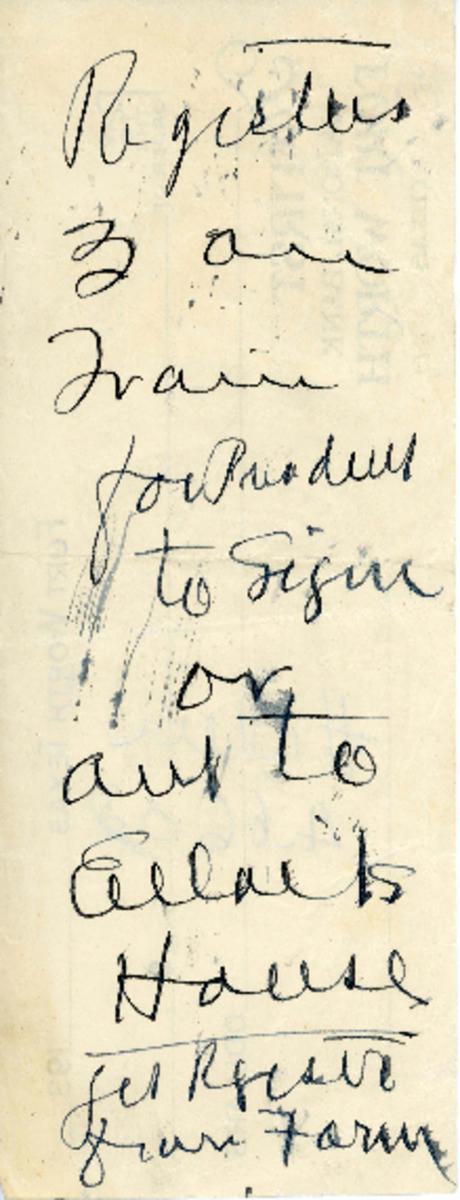 Registers
3 on
Train
for President
to Sign
or
out to
Elliott's
House
get Register
from Farm